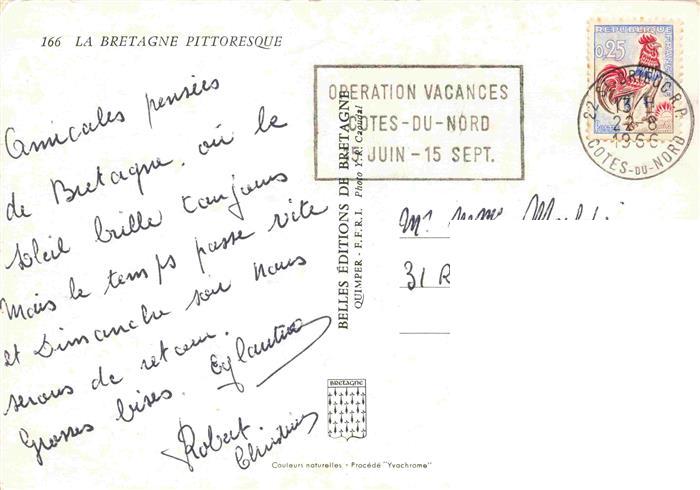 166 LA BRETAGNE PITTORESQUE
Amicales pensées
de Bretagne, où le
Soleil brille toujours
Mais le temps passe vite
et Dimanche soir nous
serons de retour.
Grosses bises. Eglantine
Robert
Christian
OPERATION VACANCES
COTES-DU-NORD
JUIN - 15 SEPT.
BELLES ÉDITIONS DE BRETAGNE
QUIMPER - F.F.R.I. Photo
REPUBLIQUE FRANÇAISE
0,25
22 ST BRIEUC R.P.
13 H
22-8
1966
COTES-DU-NORD
31 R
BRETAGNE
Couleurs naturelles - Procédé "Yvachrome"